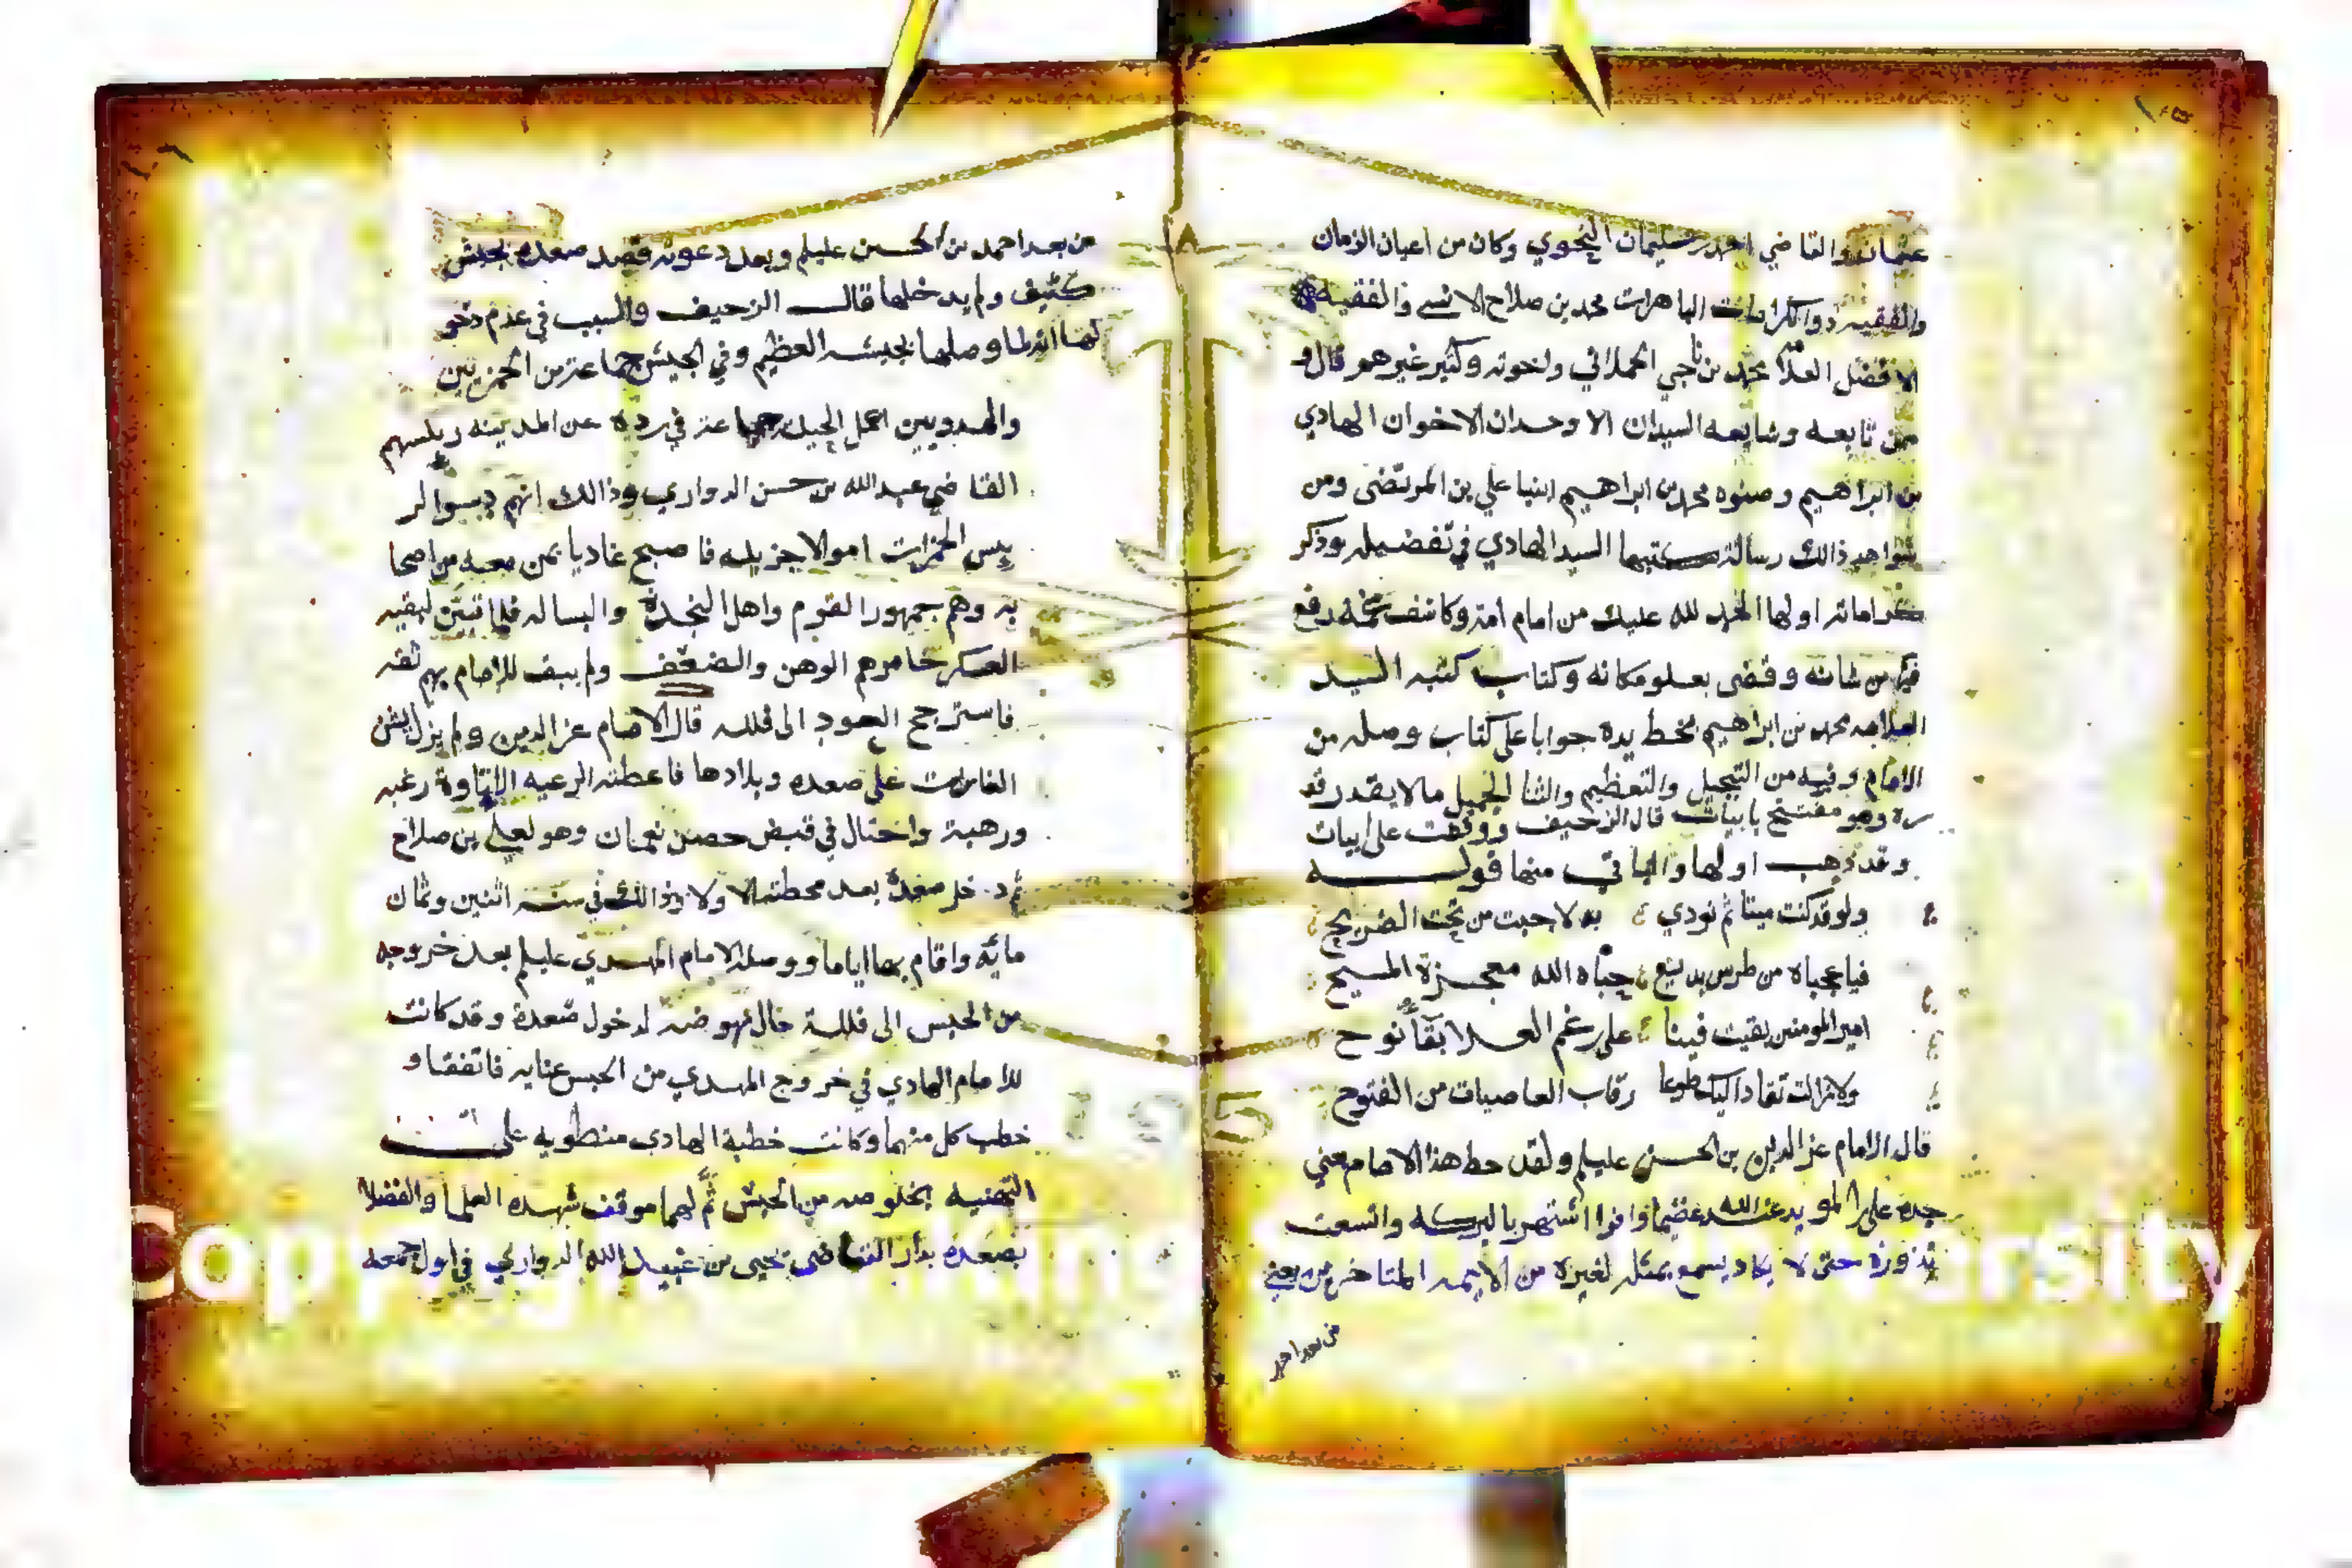 عثمان والقاضي احمد بن سليمان النحوي وكان من اعيان الزمان
والفقيه ذو الكرامات الباهرات محمد بن صلاح الانسي والفقيه
الافضل العلا محمد بن ناجي الحملاني واخوته وكثير غيرهم قال و
ممن تابعه وشايعه السيدان الاوحدان الاخوان الهادي
بن ابراهيم وصنوه محمد بن ابراهيم ابنيا علي بن المرتضى ومن
شواهد ذالك رسالة كتبها السيد الهادي في تفضيله وذكر
كراماته اولها الحمد لله عليك من امام امة وكاشف غمة رفع
فيها من شانه وقضى بعلو مكانه وكتاب كتبه السيد
العلامه محمد بن ابراهيم بخط يده جوابا على كتاب وصله من
الامام وفيه من التبجيل والتعظيم والثنا الجميل ما لا يقدر قد
ره وهو مفتتح بابيات قال الزحيف ووقفت على ابيات
وقد ذهب اولها والباقي منها قوله
ولو قد كنت ميتا ثم نودي به لاجبت من تحت الضريح
فيا عجباه من طرس بديع حباه الله معجزة المسيح
امير المومنين بقيت فينا على رغم العدا بقاء نوح
ولا زالت تقاد اليك طوعا رقاب العاصيات من الفتوح
قال الامام عز الدين بن الحسن عليلم ولقد حط هذا الامام معني
جده علي بن المويد عند الله عظيما وافرا اشتهر بالبركه واتسعت
نذوره حتى لا يكاد يسمع بمثله لغيره من الايمه المتاخرين يعني
من بعد احمد
من بعد احمد بن الحسين عليلم وبعد دعوته قصد صعده بجيش
كثيف ولم يدخلها قال الزحيف والسبب في عدم دخو
لها انه لما وصلها بجيشه العظيم وفي الجيش جماعة من الحمزيين
والهدويين اعمل الحيله جماعة في رده عن المدينه ريسهم
القاضي عبدالله بن حسن الدواري وذالك انهم دسوا لر
ييس الحمزات اموالا جزيله فاصبح غاديا بمن معه من اصحا
به وهم جمهور القوم واهل النجدة والبساله فلما تبين لبقيه
العسكر خامرهم الوهن والضعف ولم يبق للامام بهم ثقه
فاسترجح العود الى فلله قال الامام عز الدين ولم يزل يشن
الغارات على صعده وبلادها فاعطته الرعيه الاتاوة رغبه
ورهبة واحتال في قبض حصن نعمان وهو لعلي بن صلاح
ثم دخل صعدة بعد محطته ولا وذالك في سنة اثنين وثمان
مايه واقام بها اياما ووصله الامام المهدي عليلم بعد خروجه
من الحبس الى فللة حال نهوضه لدخول صعدة وقد كانت
للامام الهادي في خروج المهدي من الحبس عنايه فاتفقا و
خطب كل منهما وكانت خطبة الهادي منطويه على
التهنيه بخلوصه من الحبس ثم لهما موقف شهده العلما والفضلا
بصعدة بدار القاضي يحيى بن عبيد الله الدواري في اول جمعه
Copyright © King Saud University
1957